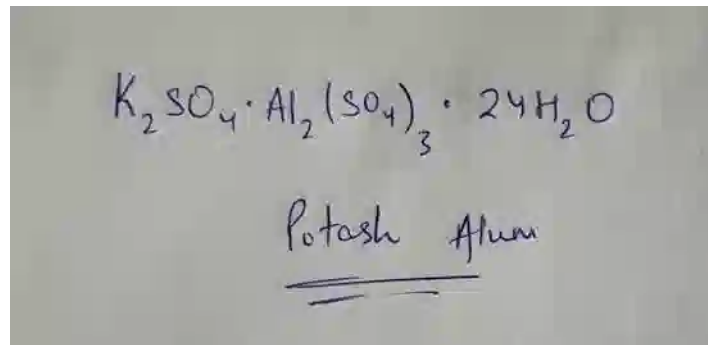 K₂SO₄·Al₂(SO₄)₃·24H₂O
Potash Alum